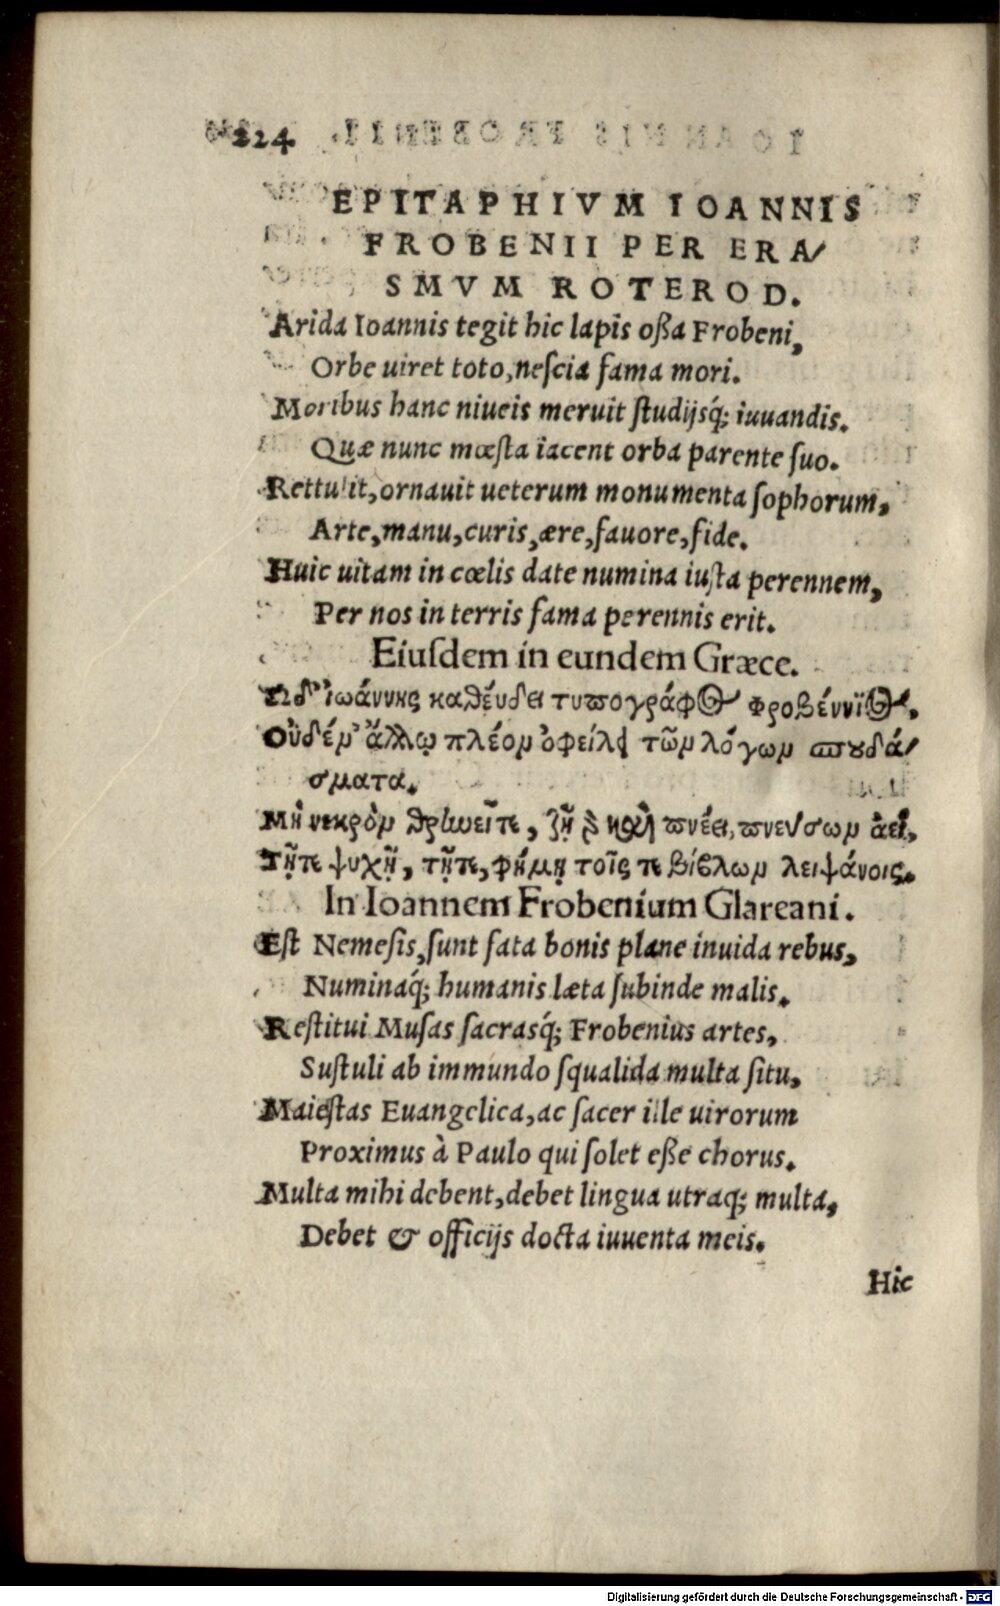 224
EPITAPHIVM IOANNIS
FROBENII PER ERA/
SMVM ROTEROD.
Arida Ioannis tegit hic lapis oßa Frobeni,
Orbe uiret toto, neſcia fama mori.
Moribus hanc niueis meruit ſtudijsq́; iuuandis.
Quæ nunc mœſta iacent orba parente ſuo.
Rettulit, ornauit ueterum monumenta ſophorum,
Arte, manu, curis, ære, fauore, fide.
Huic uitam in cœlis date numina iuſta perennem,
Per nos in terris fama perennis erit.
Eiuſdem in eundem Græce.
Ωδ' ἰωάννης καθέυδει τυπογράφος φροβέννϊος,
Οὐδέν' ἄλλῳ πλέον ὀφείλει τῶν λόγων σπουδά/
σματα.
Μὴ νεκρὸν θρηνεῖτε, ζῇ γὰρ καὶ πνέει, πνεύσων ἀεὶ,
Τῇτε ψυχῇ, τῇτε, φήμῃ τοῖς τε βίβλων λειψάνοις.
In Ioannem Frobenium Glareani.
Eſt Nemeſis, ſunt fata bonis plane inuida rebus,
Numinaq́; humanis læta ſubinde malis.
Reſtitui Muſas ſacrasq́; Frobenius artes,
Suſtuli ab immundo ſqualida multa ſitu,
Maieſtas Euangelica, ac ſacer ille uirorum
Proximus à Paulo qui ſolet eße chorus.
Multa mihi debent, debet lingua utraq; multa,
Debet & officijs docta iuuenta meis.
Hic
Digitalisierung gefördert durch die Deutsche Forschungsgemeinschaft - DFG